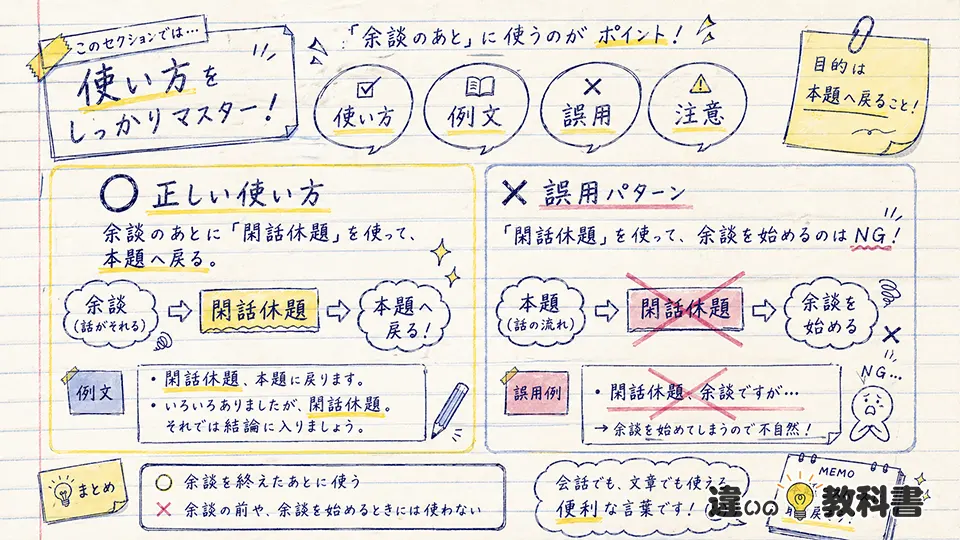 このセクションでは…
使い方を
しっかりマスター！
「余談のあと」に使うのが ポイント！
使い方
例文
誤用
注意
目的は
本題へ戻ること！
正しい使い方
余談のあとに「閑話休題」を使って、
本題へ戻る。
余談
(話がそれる)
閑話休題
本題へ
戻る！
例文
・閑話休題、本題に戻ります。
・いろいろありましたが、閑話休題。
それでは結論に入りましょう。
× 誤用パターン
「閑話休題」を使って、余談を始めるのはNG！
本題
(話の流れ)
閑話休題
余談を
始める
NG…
誤用例
・閑話休題、余談ですが…
→ 余談を始めてしまうので不自然！
まとめ
○ 余談を終えたあとに使う
× 余談の前や、余談を始めるときには使わない
会話でも、文章でも使える
便利な言葉です！
MEMO
違いの教科書